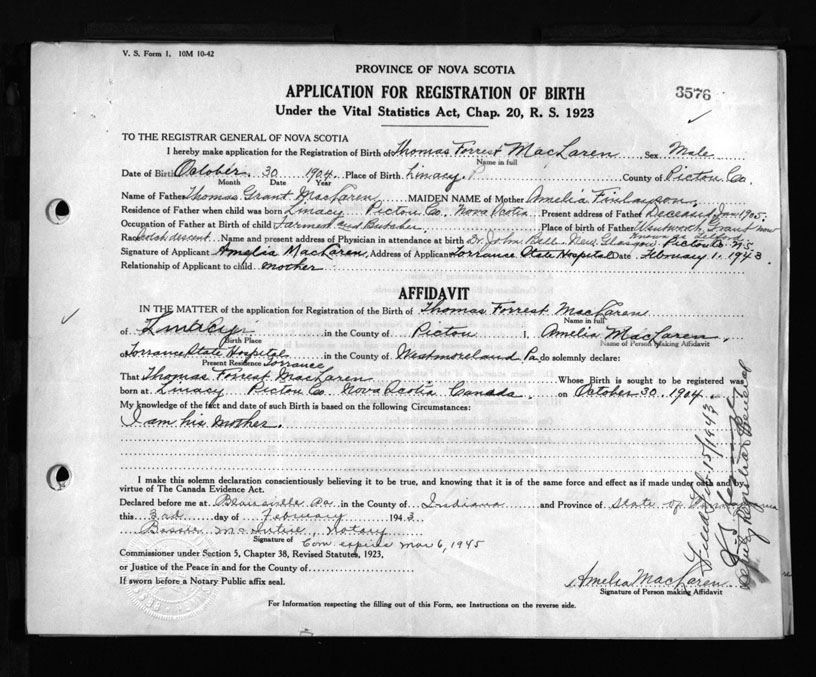 V. S. Form 1, 10M 10-42
PROVINCE OF NOVA SCOTIA
APPLICATION FOR REGISTRATION OF BIRTH
3576
Under the Vital Statistics Act, Chap. 20, R. S. 1923
TO THE REGISTRAR GENERAL OF NOVA SCOTIA
I hereby make application for the Registration of Birth of Thomas Forrest MacLaren Sex Male
Name in full
Date of Birth October 30 1904 Place of Birth Linacy County of Pictou Co.
Month Date Year
Name of Father Thomas Grant MacLaren MAIDEN NAME of Mother Amelia Finlayson
Residence of Father when child was born Linacy Pictou Co. Nova Scotia Present address of Father Deceased Jan 1905.
Occupation of Father at Birth of child Farmer and Butcher Place of birth of Father Wentworth Grant now
Known as Telford
Race Scotch descent Name and present address of Physician in attendance at birth Dr. John Bell New Glasgow Pictou Co. N.S.
Signature of Applicant Amelia MacLaren Address of Applicant Torrance State Hospital Date February 1, 1943
Relationship of Applicant to child mother
AFFIDAVIT
IN THE MATTER of the application for Registration of the Birth of Thomas Forrest MacLaren
Name in full
of Linacy in the County of Pictou I, Amelia MacLaren,
Birth Place Name of Person Making Affidavit
of Torrance State Hospital in the County of Westmoreland Pa. do solemnly declare:
Present Residence Torrance
That Thomas Forrest MacLaren Whose Birth is sought to be registered was
born at Linacy Pictou Co. Nova Scotia Canada. on October 30, 1904.
My knowledge of the fact and date of such Birth is based on the following Circumstances:
I am his mother.
I make this solemn declaration conscientiously believing it to be true, and knowing that it is of the same force and effect as if made under oath and by
virtue of The Canada Evidence Act.
Declared before me at Blairsville Pa in the County of Indiana and Province of State of Pennsylvania
this 3rd day of February 1943
Bessie Notary
Signature of Com expires Mar 6, 1945
Commissioner under Section 5, Chapter 38, Revised Statutes, 1923,
or Justice of the Peace in and for the County of
If sworn before a Notary Public affix seal.
Amelia MacLaren
Signature of Person making Affidavit
For Information respecting the filling out of this Form, see Instructions on the reverse side.
Filed Feb. 15/1943
Deputy Registrar General